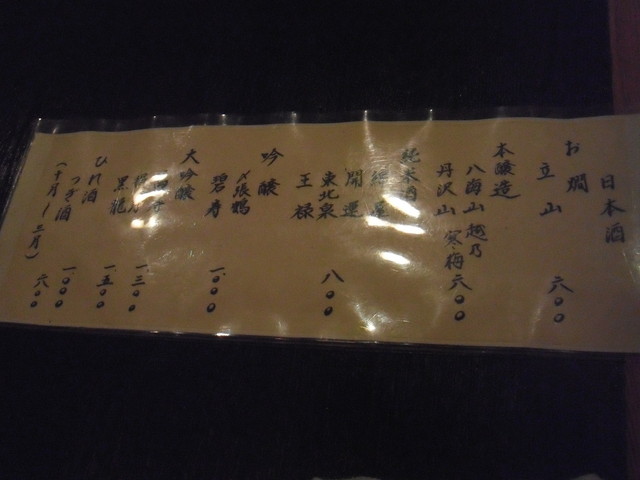 日本酒
お燗
立山 六〇〇
本醸造
八海山 越乃
丹沢山 寒梅 六〇〇
純米酒
開運
東北泉
王禄 八〇〇
吟醸
〆張鶴
碧寿 一、〇〇〇
大吟醸
一、三〇〇
黒龍 一、五〇〇
ひれ酒 一、〇〇〇
つぎ酒 六〇〇
(十月〜三月)